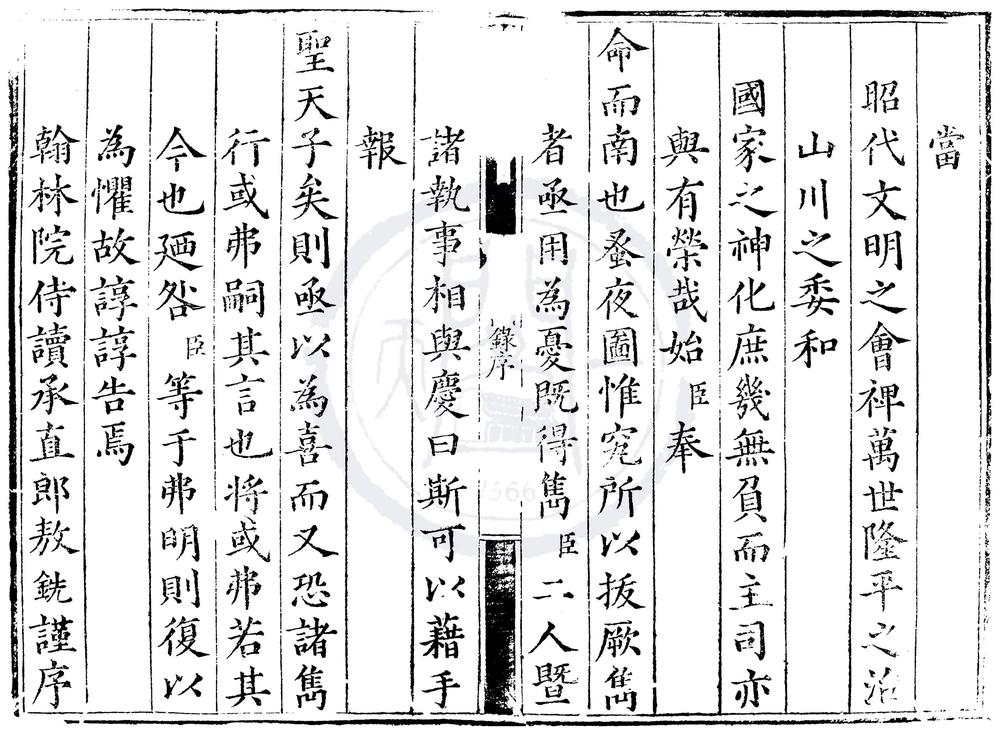 當
昭代文明之會裨萬世隆平之治
山川之委和
國家之神化庶幾無負而主司亦
與有榮哉始臣奉
命而南也蚤夜圖惟究所以拔厥雋
者亟用為憂既得雋臣二人暨
錄序
諸執事相與慶曰斯可以藉手
報
聖天子矣則亟以為喜而又恐諸雋
行或弗嗣其言也將或弗若其
今也廼咎臣等于弗明則復以
為懼故諄諄告焉
翰林院侍讀承直郎敖銑謹序